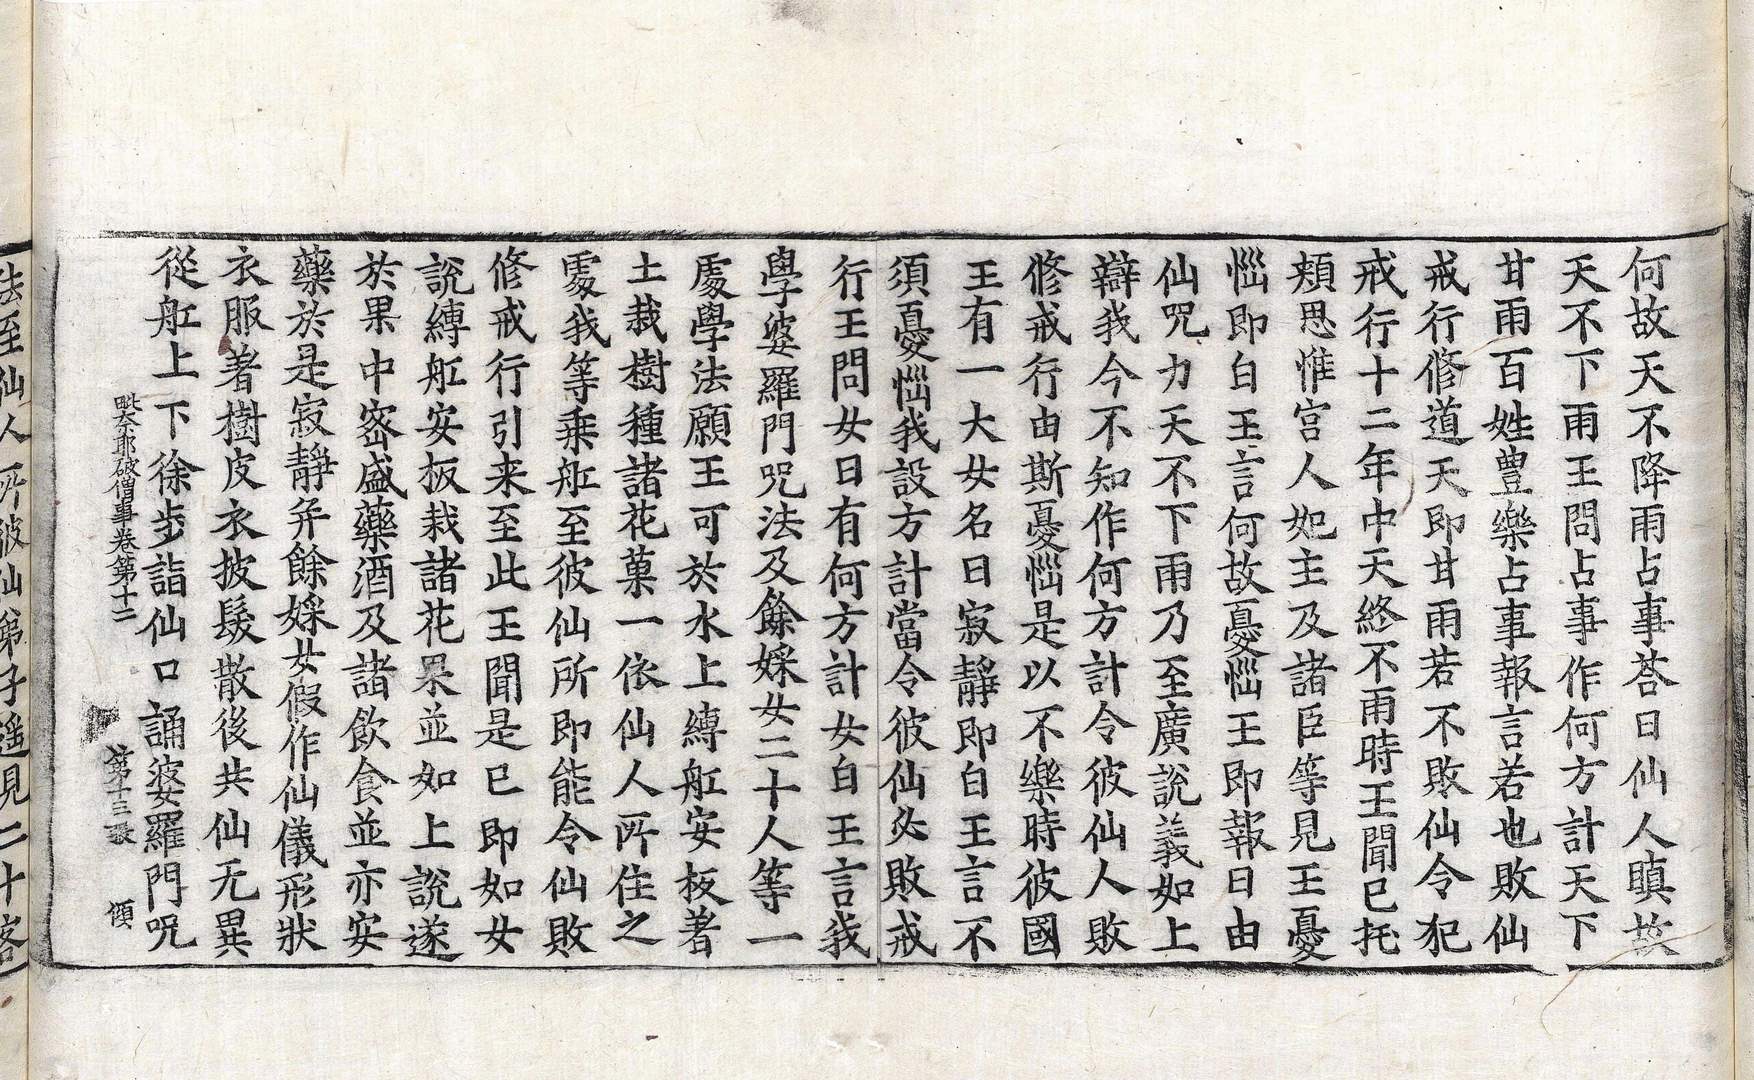 何故天不降雨占事荅曰仙人瞋故
天不下雨王問占事作何方計天下
甘雨百姓豊樂占事報言若也敗仙
戒行修道天即甘雨若不敗仙令犯
戒行十二年中天終不雨時王聞已托
頰思惟宫人妃主及諸臣等見王憂
惱即白王言何故憂惱王即報曰由
仙呪力天不下雨乃至廣說義如上
辯我今不知作何方計令彼仙人敗
修戒行由斯憂惱是以不樂時彼國
王有一大女名曰寂靜即白王言不
須憂惱我設方計當令彼仙必敗戒
行王問女曰有何方計女白王言我
學婆羅門呪法及餘婇女二十人等一
處學法願王可於水上縛舡安板著
土栽樹種諸花菓一依仙人所住之
處我等乗舡至彼仙所即能令仙敗
修戒行引来至此王聞是已即如女
說縛舡安板栽諸花果並如上說遂
於果中密盛藥酒及諸飲食並亦安
藥於是寂靜并餘婇女假作仙儀形狀
衣服著樹皮衣披髮散後共仙无異
從舡上下徐步詣仙口誦婆羅門呪
毗奈耶破僧事卷第十二 第十三張 傾
法至仙人所彼仙弟子遥見二十客